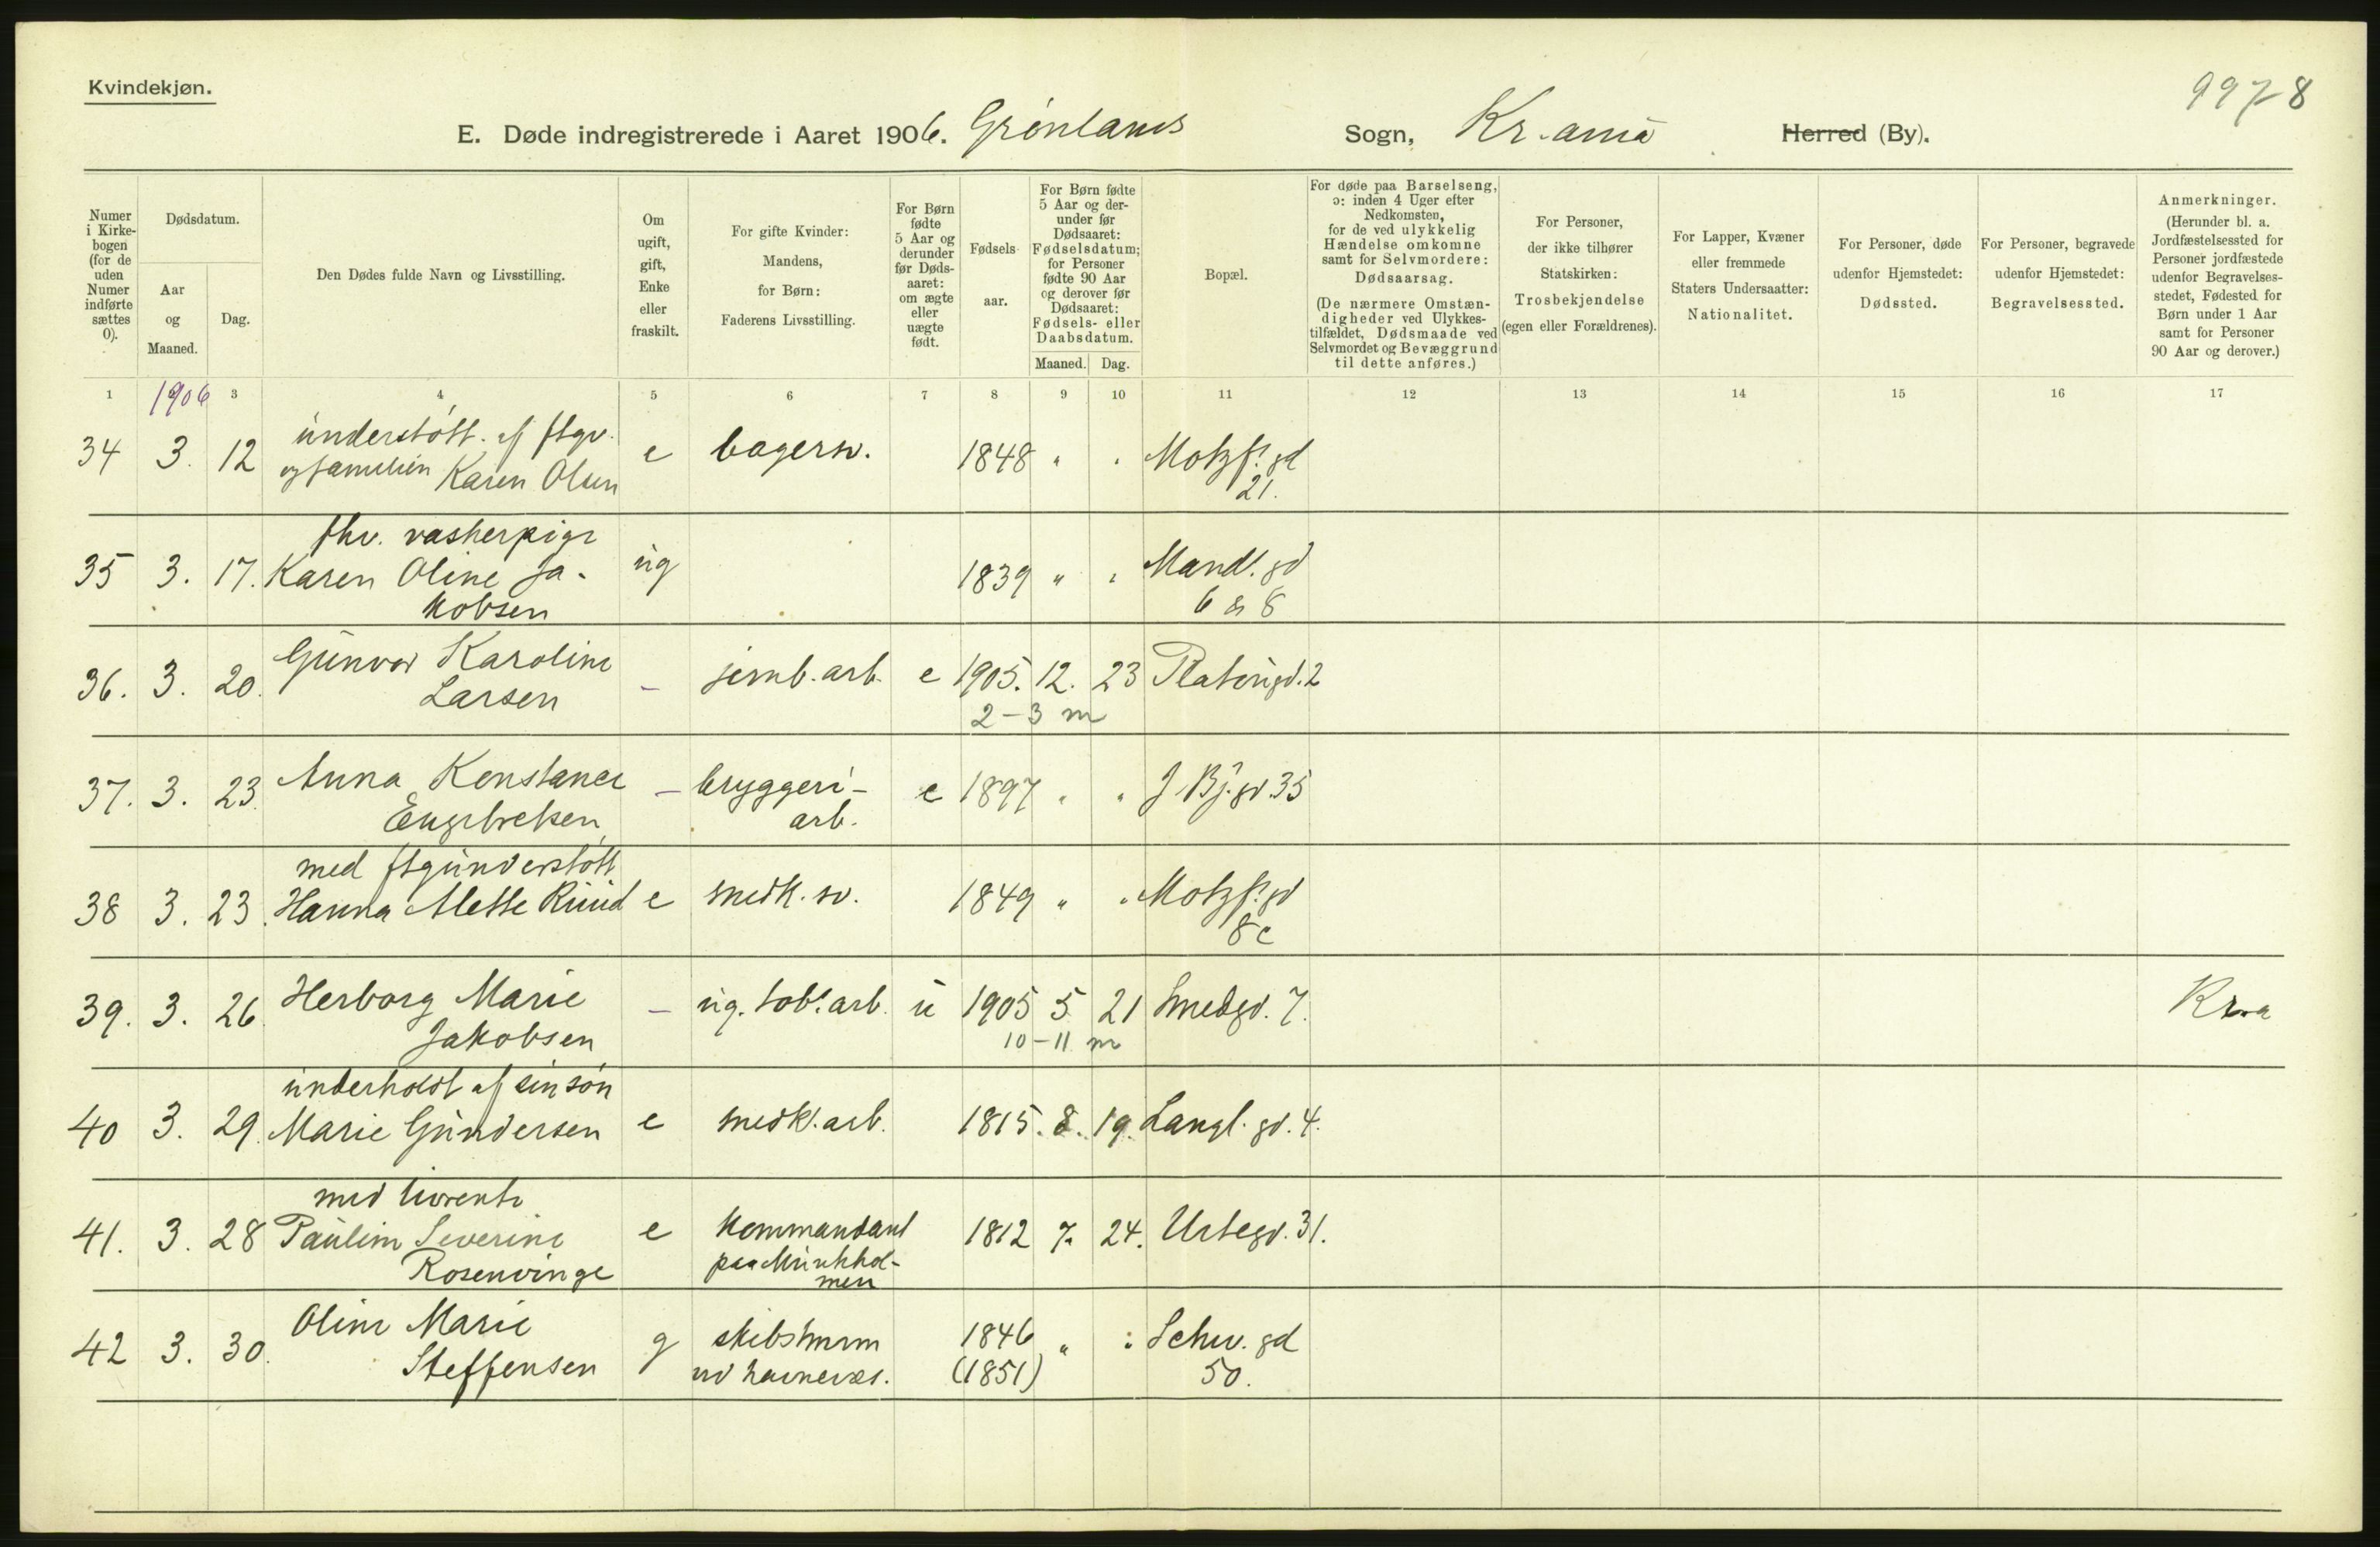 Kvindekjøn.
9978
E. Døde indregistrerede i Aaret 1906. Grønlands Sogn, Kr.ania Herred (By).
Numer i Kirkebogen (for de uden Numer indførte sættes 0).
Dødsdatum.
Aar og Maaned.
Dag.
Den Dødes fulde Navn og Livsstilling.
Om ugift, gift, Enke eller fraskilt.
For gifte Kvinder: Mandens, for Børn: Faderens Livsstilling.
For Børn fødte 5 Aar og derunder før Dødsaaret: om ægte eller uægte født.
Fødselsaar.
For Børn fødte 5 Aar og derunder før Dødsaaret: Fødselsdatum; for Personer fødte 90 Aar og derover før Dødsaaret: Fødsels- eller Daabsdatum.
Maaned. Dag.
Bopæl.
For døde paa Barselseng, ɔ: inden 4 Uger efter Nedkomsten, for de ved ulykkelig Hændelse omkomne samt for Selvmordere: Dødsaarsag.
(De nærmere Omstændigheder ved Ulykkestilfældet, Dødsmaade ved Selvmordet og Bevæggrund til dette anføres.)
For Personer, der ikke tilhører Statskirken: Trosbekjendelse (egen eller Forældrenes).
For Lapper, Kvæner eller fremmede Staters Undersaatter: Nationalitet.
For Personer, døde udenfor Hjemstedet: Dødssted.
For Personer, begravede udenfor Hjemstedet: Begravelsessted.
Anmerkninger. (Herunder bl. a. Jordfæstelsessted for Personer jordfæstede udenfor Begravelsesstedet, Fødested for Børn under 1 Aar samt for Personer 90 Aar og derover.)
1 1906 3 4 5 6 7 8 9 10 11 12 13 14 15 16 17
understøtt. af ftgv.
34 3. 12 og familien Karen Olsen e bagersv. 1848 " " Motzf. gd
21.
fhv. vaskerpige
35 3. 17. Karen Oline Ja- ug 1839 " " Mandl. gd
kobsen 6 & 8
36. 3. 20. Gunvor Karoline
Larsen - jernb. arb. e 1905. 12. 23 Platougd. 2
2-3 m
37. 3. 23. Anna Konstance - bryggeri- e 1897 " " J. Bj. gd. 35
Engebretsen arb.
med ftgunderstøtt
38 3. 23. Hanna Mette Ruud e snedk. sv. 1849 " " Motzf. gd
8c
39. 3. 26. Herborg Marie - ug. tob. arb. u 1905 5 21 Smedgd. 7. Kr.a
Jakobsen 10-11 m
underholdt af sin søn
40 3. 29. Marie Gundersen e snedk. arb. 1815. 8. 19. Langl. gd. 4.
med livrente
41. 3. 28 Pauline Severine e kommandant 1812 7. 24. Urtegd. 31.
Rosenvinge paa Munkhol-
men
42 3. 30. Oline Marie g skibstømm 1846 " " Schw. gd
Steffensen ved havnevæs. (1851) 50.